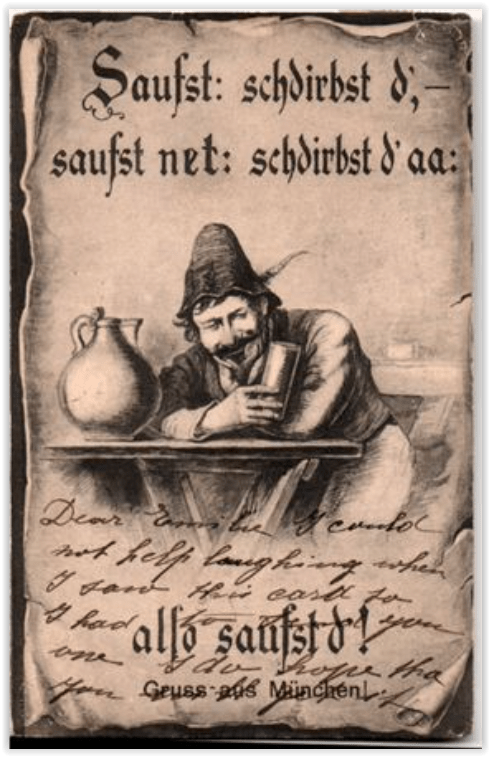 Saufst: schdirbst d',—
saufst net: schdirbst d' aa:
Dear Emilie I could
not help laughing when
I saw this card so
I had to send you
also saufst d'!
one I do hope tha
Gruss aus München!
you will